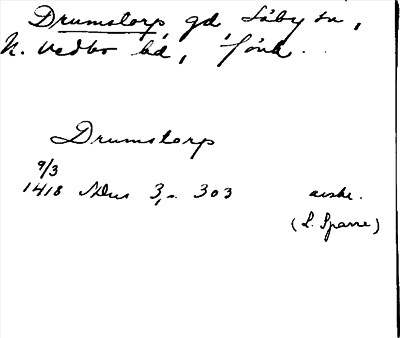 Drumstorp, gd, Säby sn,
N. Vedbo hd, Jönk.
Drumstorp
9/3
1418 NDns 3,- 303 avskr.
(S. Sparre)